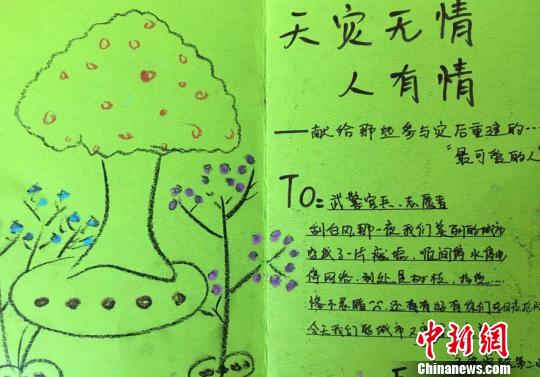 天灾无情
人有情
——献给那些参与灾后重建的…
"最可爱的人
TO：武警官兵、志愿者
刮台风那一夜我们美丽的城市
变成了一片废墟，瞬间停水停电
停网络，到处是树枝、
惨不忍睹
今天我们的城市
中新网
Chinanews.com